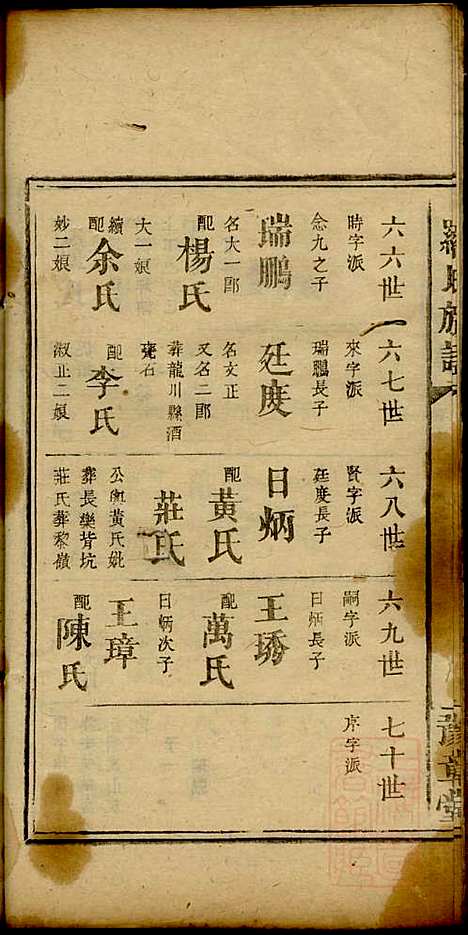 羅氏族譜
豫章堂
六六世
時字派
念九之子
瑞鵬
名大一郎
配
楊氏
大一娘
續配
余氏
妙二娘
六七世
來字派
瑞鵬長子
廷度
名文正
又名二郎
葬龍川縣酒
甕石
配
李氏
淑止二娘
六八世
賢字派
廷度長子
日炳
配
黃氏
莊氏
公與黃氏妣
葬長樂背坑
莊氏葬黎嶺
六九世
嗣字派
日炳長子
王琇
配
萬氏
日炳次子
王璋
配
陳氏
七十世
序字派